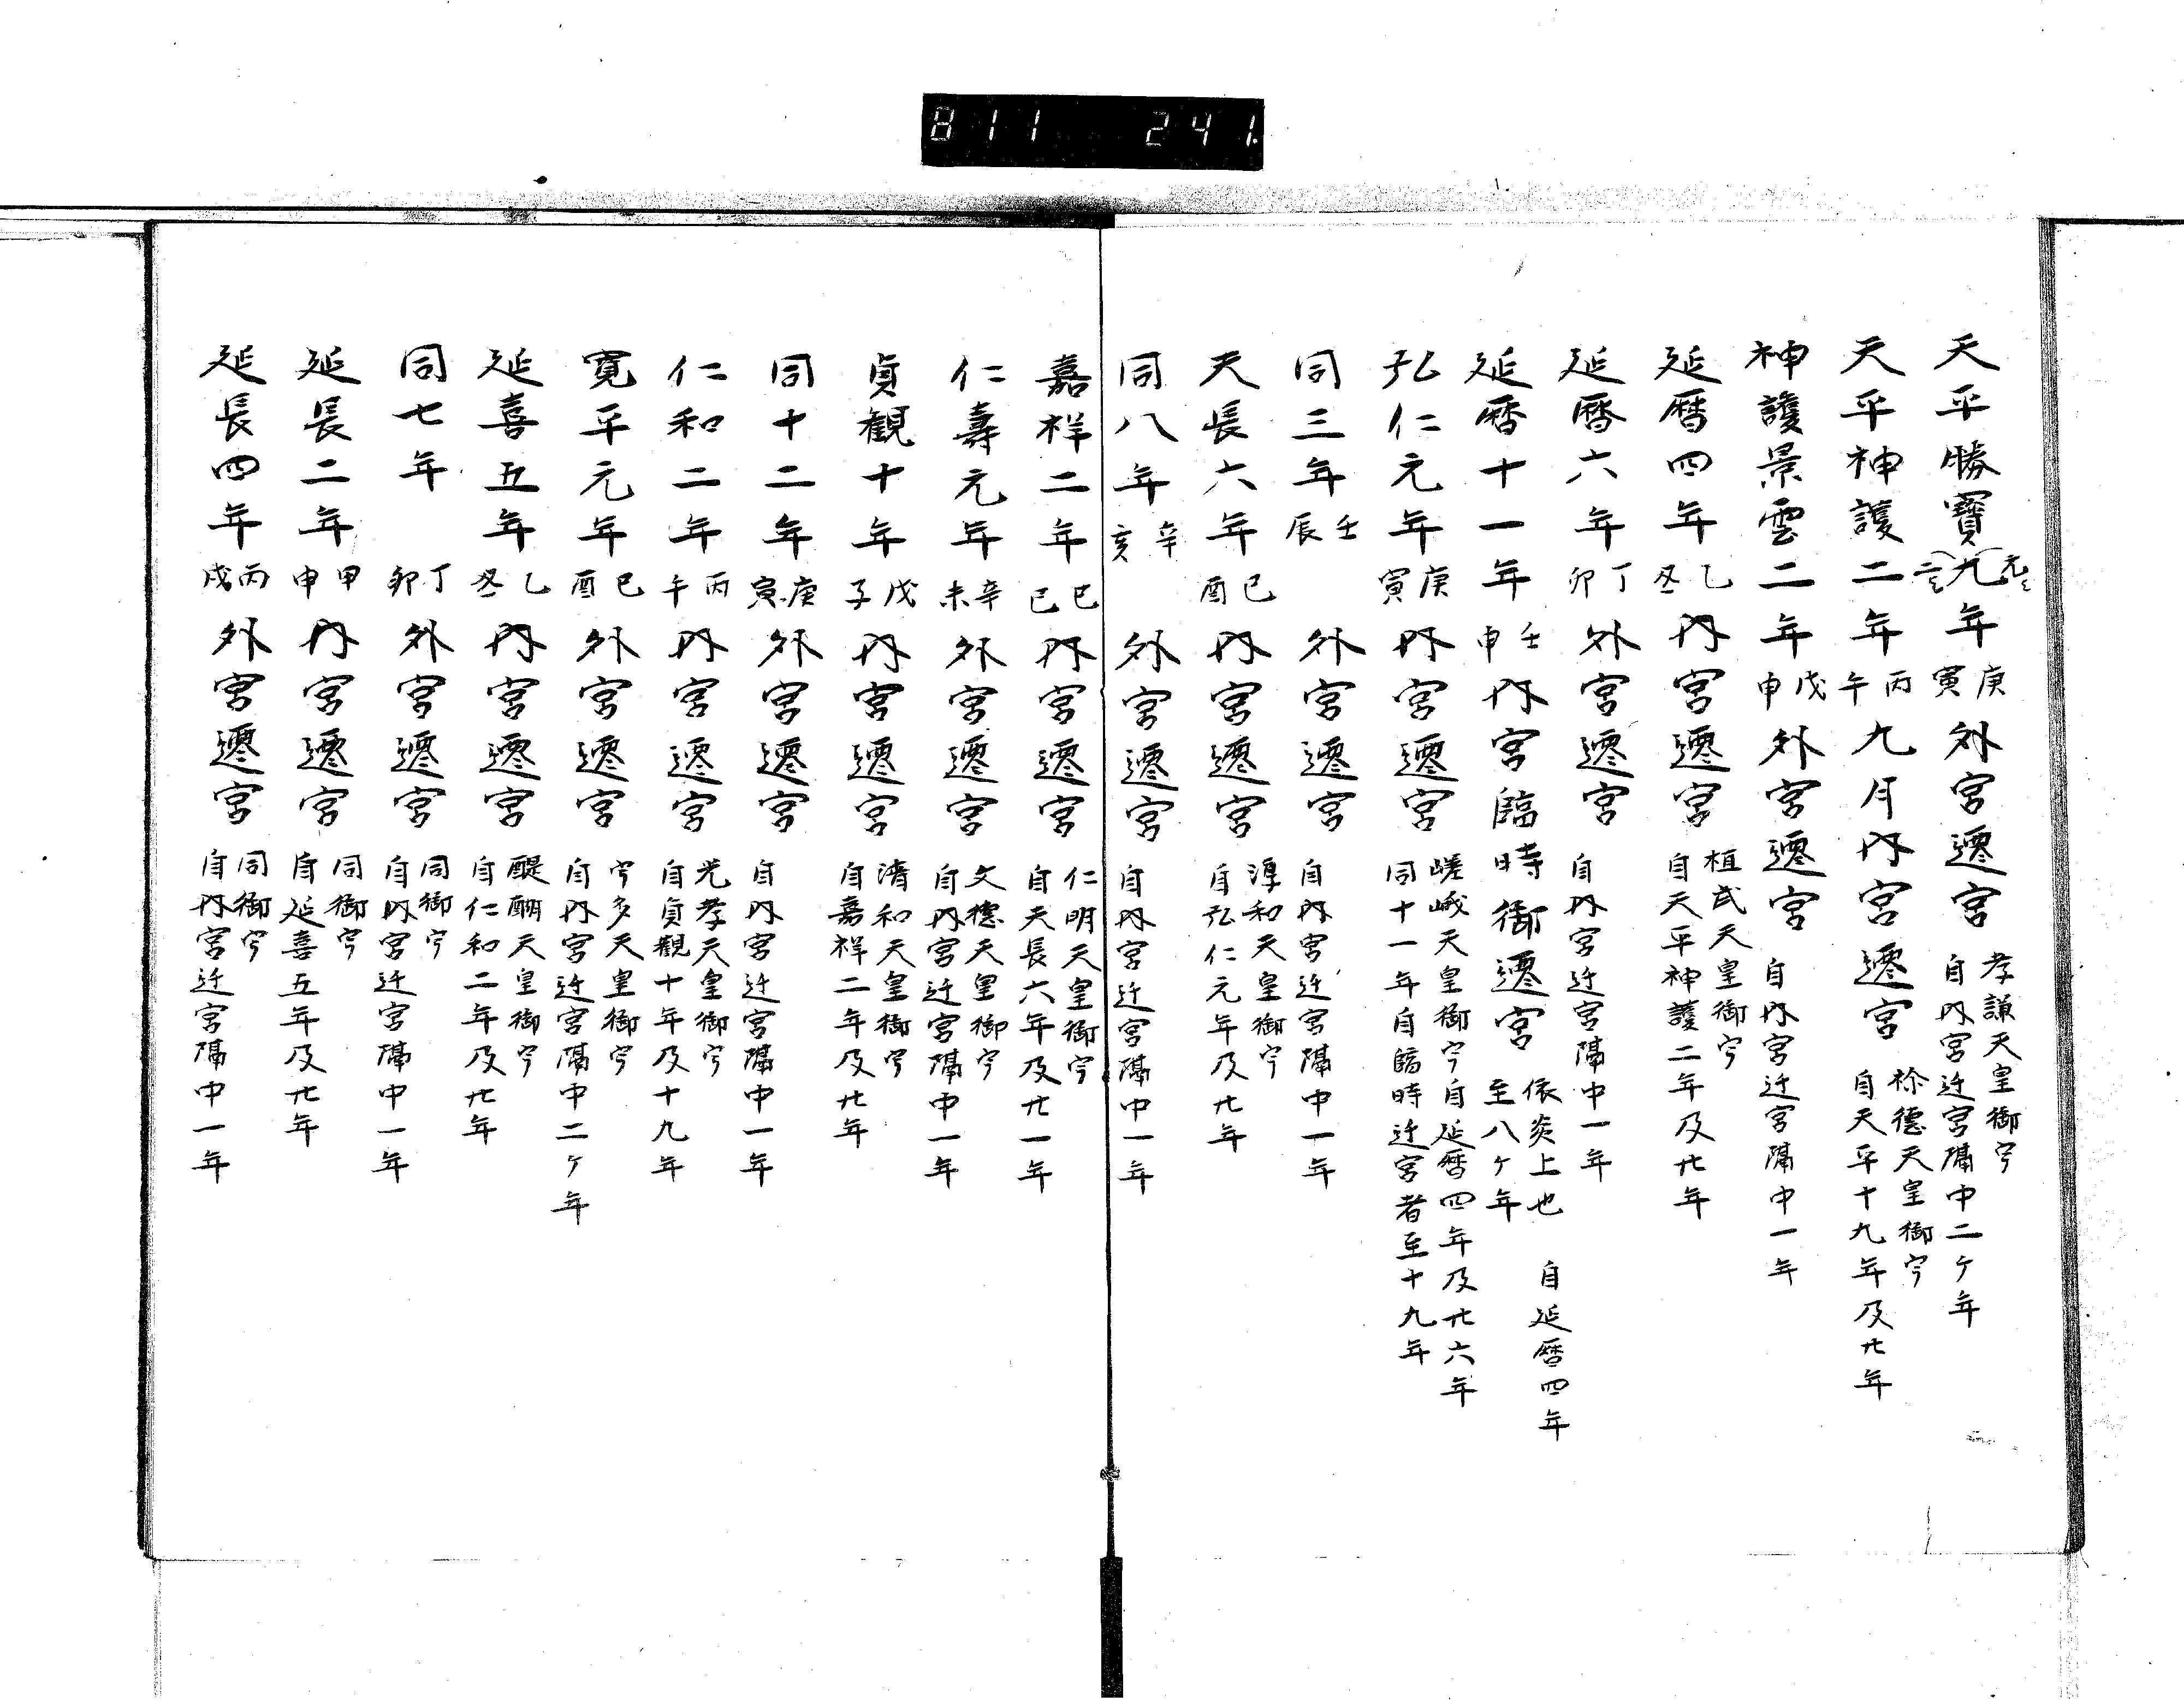 811 241.
天平勝寳九年庚寅外宮遷宮 孝謙天皇御宇
自内宮迁宮隔中二ケ年
天平神護二年丙午九月内宮遷宮 称德天皇御宇
自天平十九年及廿年
神護景雲二年戊申外宮遷宮 自内宮迁宮隔中一年
延暦四年乙丑内宮遷宮 桓武天皇御宇
自天平神護二年及廿年
延暦六年丁卯外宮遷宮 自内宮迁宮隔中一年
延暦十一年壬申内宮臨時御遷宮 依炎上也 自延暦四年
至八ケ年
弘仁元年庚寅内宮遷宮 嵯峨天皇御宇自延暦四年及廿六年
同十一年自臨時迁宮者至十九年
同三年壬辰外宮遷宮 自内宮迁宮隔中一年
天長六年己酉内宮遷宮 淳和天皇御宇
自弘仁元年及廿年
同八年辛亥外宮遷宮 自内宮迁宮隔中一年
嘉祥二年己巳内宮遷宮 仁明天皇御宇
自天長六年及廿一年
仁壽元年辛未外宮遷宮 文德天皇御宇
自内宮迁宮隔中一年
貞觀十年戊子内宮遷宮 清和天皇御宇
自嘉祥二年及廿年
同十二年庚寅外宮遷宮 自内宮迁宮隔中一年
仁和二年丙午内宮遷宮 光孝天皇御宇
自貞觀十年及十九年
寛平元年己酉外宮遷宮 宇多天皇御宇
自内宮迁宮隔中二ケ年
延喜五年乙丑内宮遷宮 醍醐天皇御宇
自仁和二年及廿年
同七年丁卯外宮遷宮 同御宇
自内宮迁宮隔中一年
延長二年甲申内宮遷宮 同御宇
自延喜五年及廿年
延長四年丙戌外宮遷宮 同御宇
自内宮迁宮隔中一年